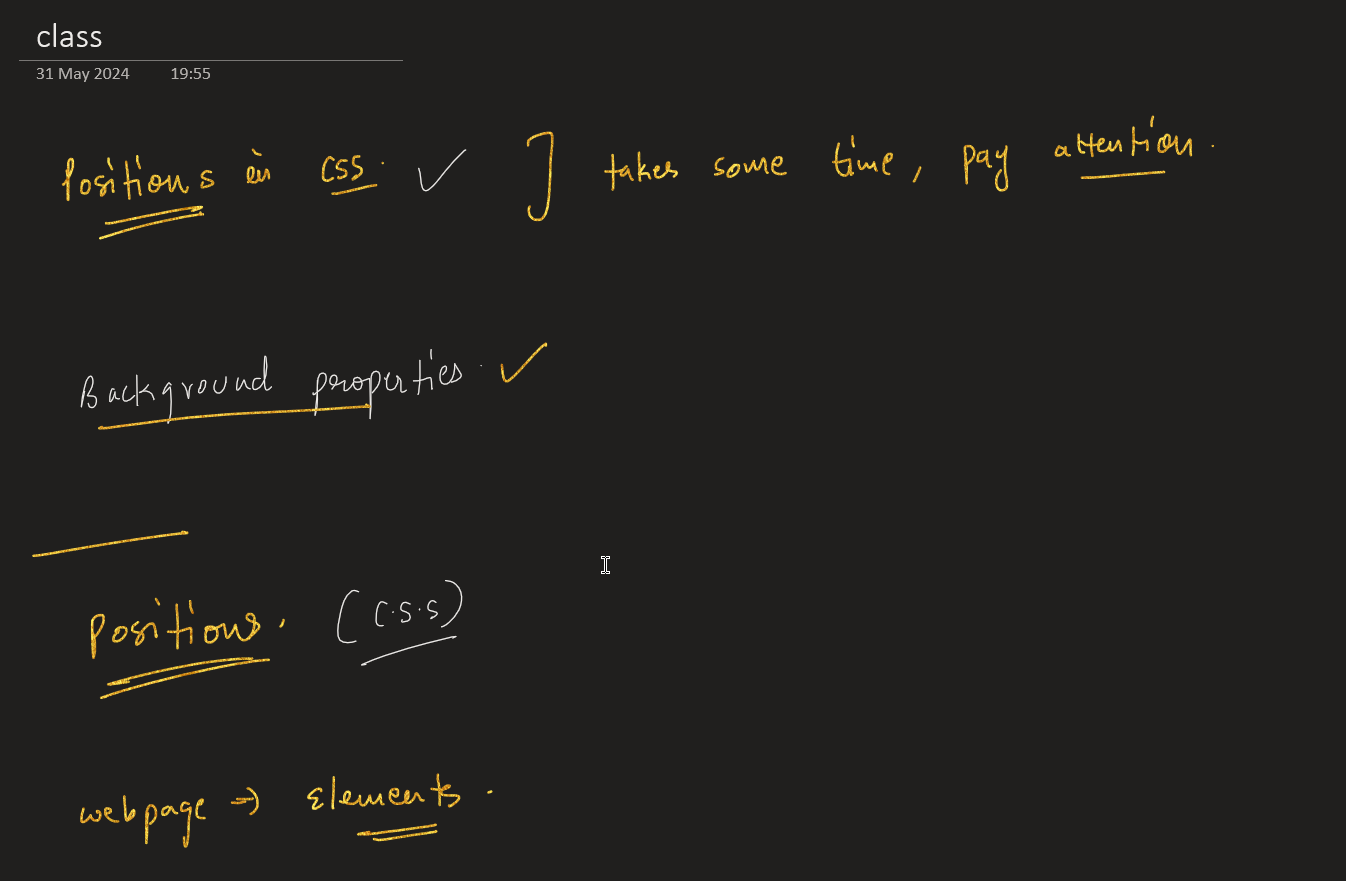 class
31 May 2024 19:55
Positions in CSS. ] takes some time, pay attention.
Background properties.
Positions. (C.S.S)
webpage → Elements.